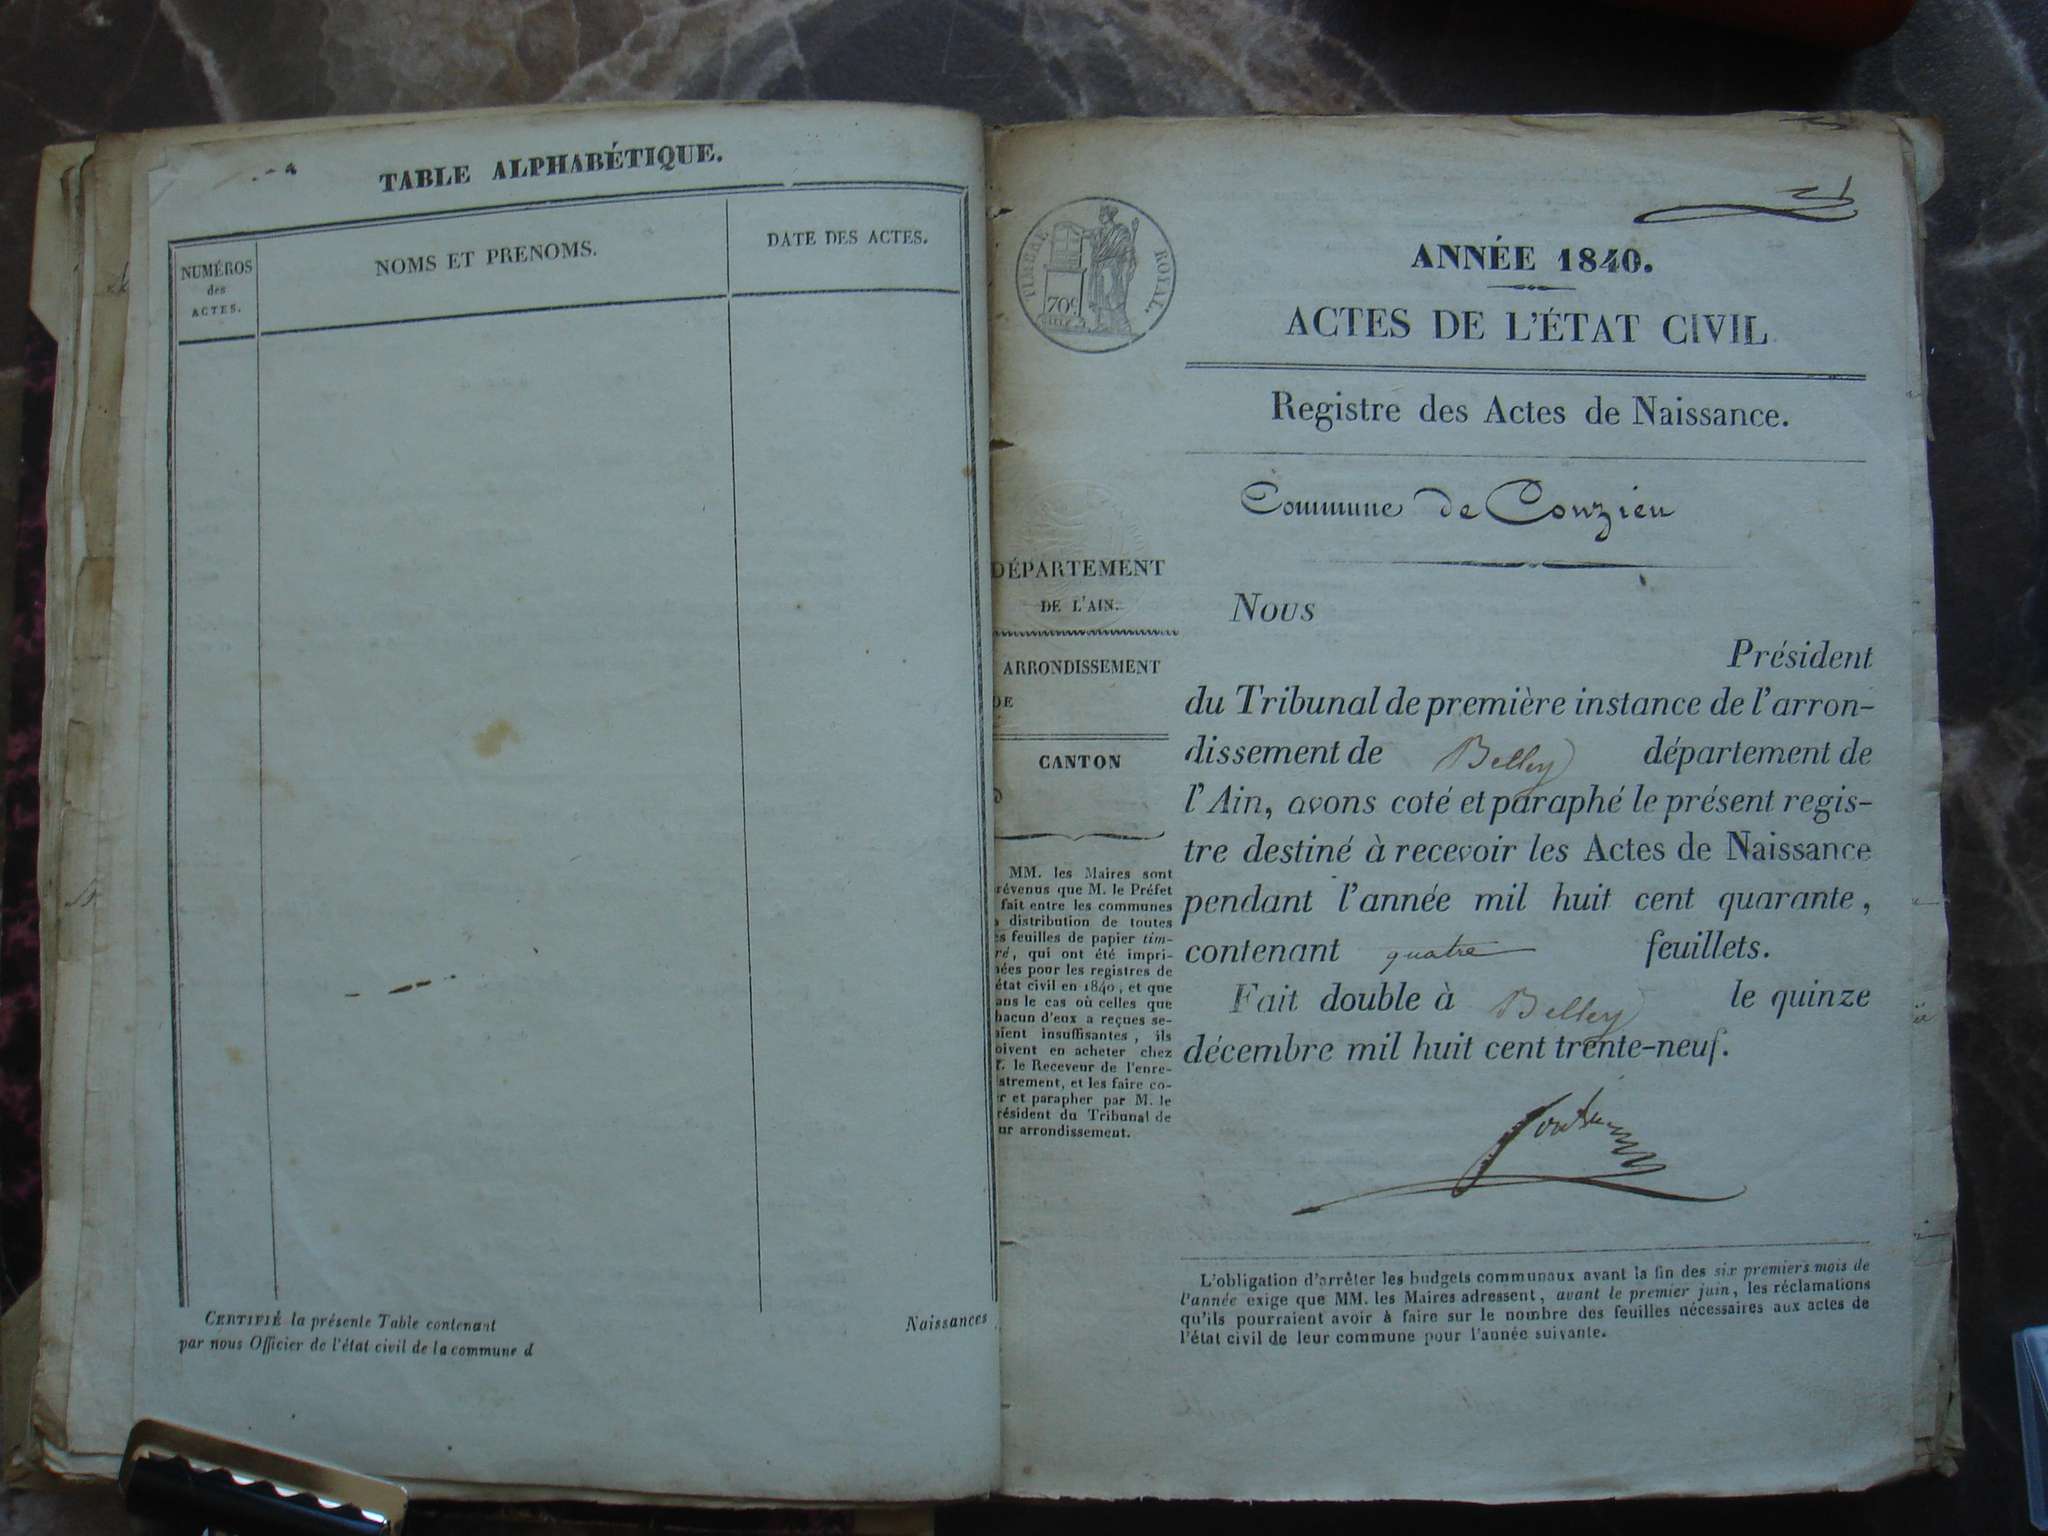 TABLE ALPHABÉTIQUE.
NUMÉROS
des
ACTES.
NOMS ET PRENOMS.
DATE DES ACTES.
CERTIFIÉ la présente Table contenant Naissances
par nous Officier de l'état civil de la commune d
TIMBRE ROYAL.
70c
ANNÉE 1840.
ACTES DE L'ÉTAT CIVIL
Registre des Actes de Naissance.
Commune de Conzieu
DÉPARTEMENT
DE L'AIN.
ARRONDISSEMENT
DE
CANTON
MM. les Maires sont
révenus que M. le Préfet
fait entre les communes
distribution de toutes
es feuilles de papier tim-
ré, qui ont été impri-
ées pour les registres de
état civil en 1840, et que
ans le cas où celles que
hacun d'eux a reçues se-
aient insuffisantes, ils
oivent en acheter chez
. le Receveur de l'enre-
istrement, et les faire co-
er et parapher par M. le
résident du Tribunal de
ur arrondissement.
Nous
Président
du Tribunal de première instance de l'arron-
dissement de Belley département de
l'Ain, avons coté et paraphé le présent regis-
tre destiné à recevoir les Actes de Naissance
pendant l'année mil huit cent quarante,
contenant quatre feuillets.
Fait double à Belley le quinze
décembre mil huit cent trente-neuf.
L'obligation d'arrêter les budgets communaux avant la fin des six premiers mois de
l'année exige que MM. les Maires adressent, avant le premier juin, les réclamations
qu'ils pourraient avoir à faire sur le nombre des feuilles nécessaires aux actes de
l'état civil de leur commune pour l'année suivante.